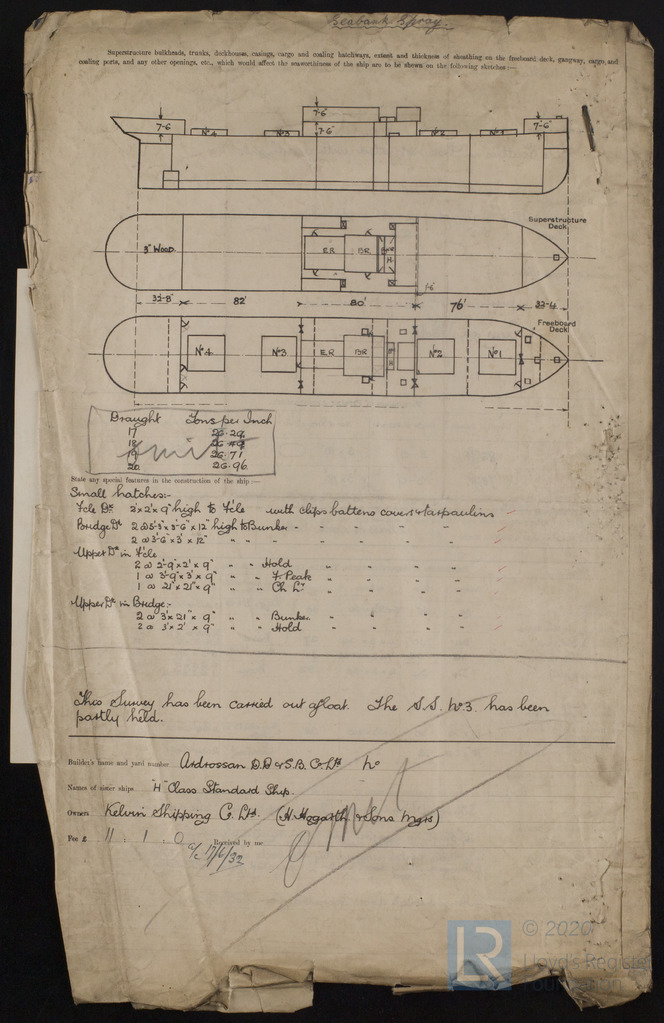 Seabank Spray.
Superstructure bulkheads, trunks, deckhouses, casings, cargo and coaling hatchways, extent and thickness of sheathing on the freeboard deck, gangway, cargo, and
coaling ports, and any other openings, etc., which would affect the seaworthiness of the ship are to be shown on the following sketches:—
7-6"
7-6 7-6" 7-6"
No 4 No 3 No 2 No 1
Superstructure
Deck
3" Wood. E.R. B.R.
32-8" 82' 80' 76' 32-4
Freeboard
Deck
No 4 No 3 E.R. B.R. No 2 No 1
Draught Tons per Inch
17 26.29
18 26.49
19 26.71
20 26.96
omit
State any special features in the construction of the ship :—
Small hatches:-
Fcle Dk 2'x2'x9" high to Fcle with clips battens covers & tarpaulins
Bridge Dk 2 @ 5'-3"x3'-6"x12" high to Bunker " " " "
2 @ 3'-6"x3'x12" " " " " " "
Upper Dk in Fcle
2 @ 2'-9"x2'x9" " " Hold " " "
1 @ 3'-9"x3'x9" " " F. Peak " " "
1 @ 21"x21"x9" " " Ch Lr " " "
Upper Dk in Bridge:-
2 @ 3'x21"x9" " " Bunker " " "
2 @ 3'x2'x9" " " Hold " " "
This Survey has been carried out afloat. The S.S. No 3. has been
partly held.
Builder's name and yard number Ardrossan D.D. & S.B. Co. Ltd No
Names of sister ships "H" Class Standard Ship.
Owners Kelvin Shipping Co. Ltd. (H. Hogarth & Sons Mgrs)
Fee £ 11 : 1 : 0 Received by me
a/c 17/6/32
omit
LR © 2020
Lloyd's Register
Foundation